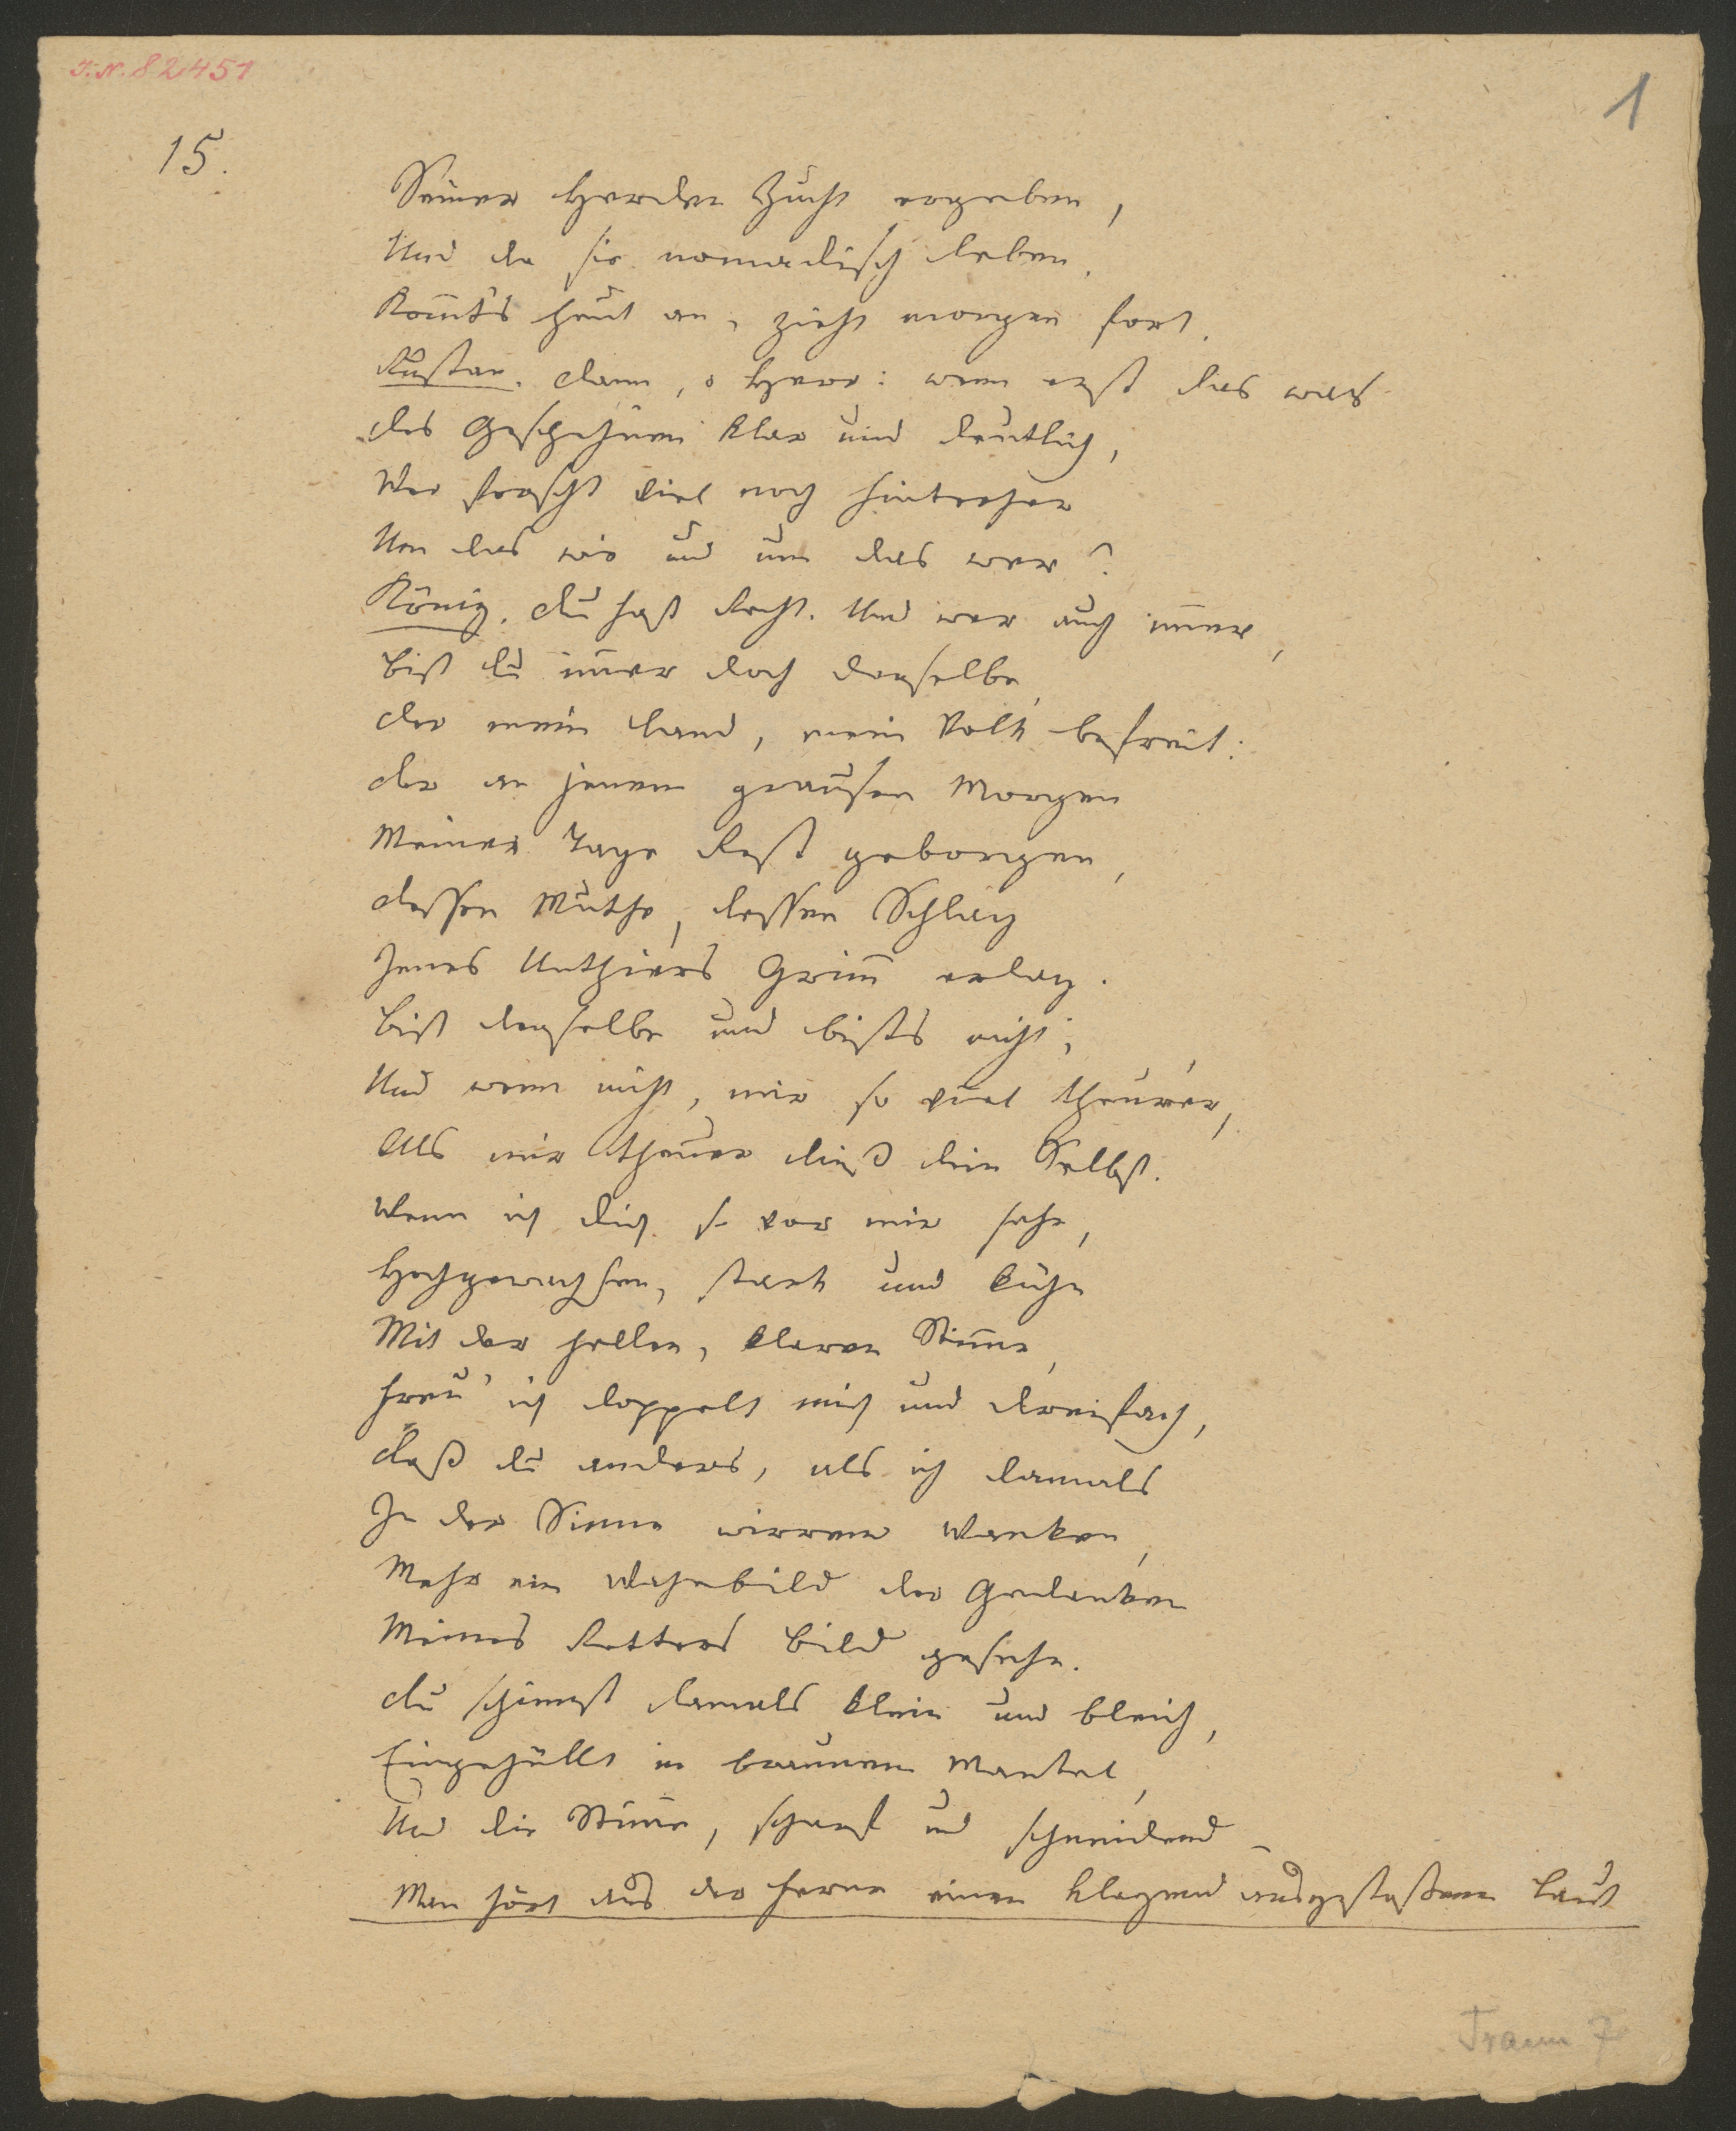 I.N. 82451
1
15.
Seiner Herden Zucht ergeben,
Und da sie nomadisch leben,
Kommts heut an, zieht morgen fort.
Rustan. Dann, o Herr: wem erst das was
Des Geschehnen klar und deutlich,
Wer forscht viel noch hinterher
Um das wie und um das wer?
König. Du hast Recht. Und wer auch immer,
Bist du immer doch derselbe,
Der mein Land, mein Volk befreit:
Der an jenem grausen Morgen
Meiner Tage Rest geborgen,
Dessen Muthe, dessen Schlag
Jenes Unthiers Grimm erlag.
Bist derselbe und bists nicht;
Und wenn nicht, mir so viel theurer,
Als mir theuer dieß dein Selbst.
Wenn ich dich so vor mir sehe,
Hochgewachsen, stark und kühn
Mit der hellen, klaren Stimme,
Freu' ich doppelt mich und dreifach,
Daß du anders, als ich damals
In der Sinne wirrem Wanken,
Mehr ein Wahnbild der Gedanken
Meines Retters Bild gesehn.
Du schienst damals klein und bleich,
Eingehüllt in braunem Mantel,
Und die Stimme, scharf und schneidend –
Man hört aus der Ferne einen klagend ausgestoßenen Laut
Traum 7